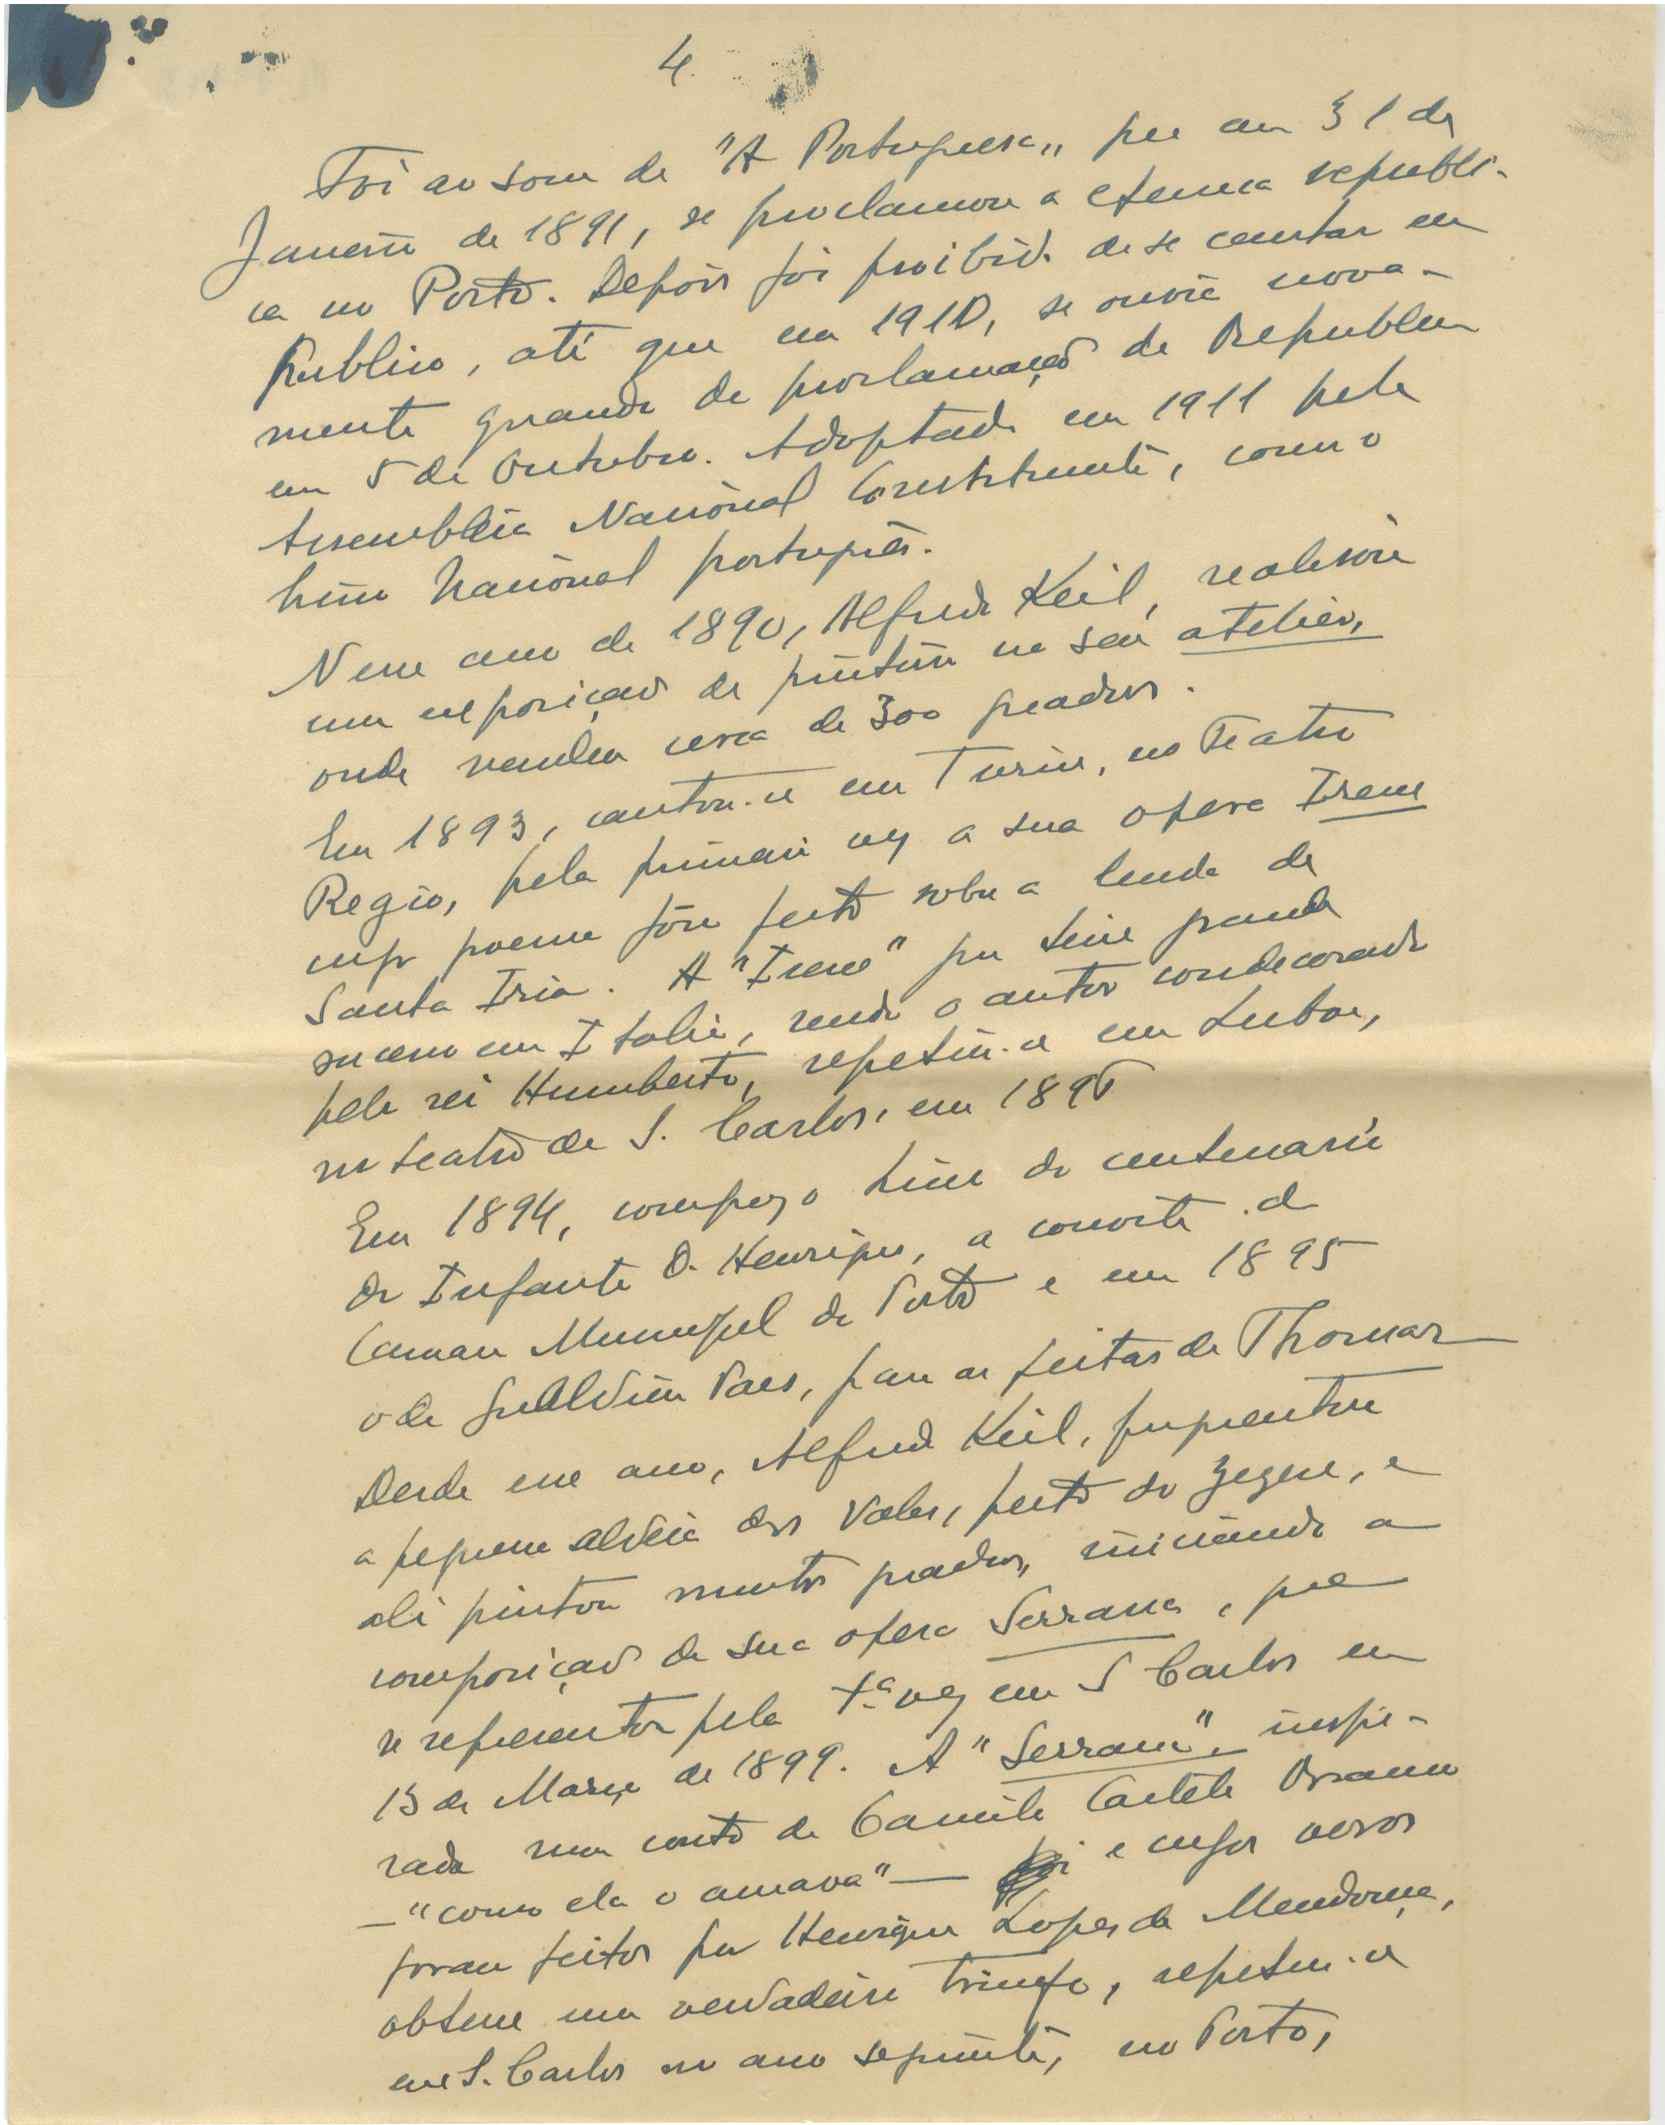 4
Foi ao som da "A Portuguesa", que em 31 de
Janeiro de 1891, se proclamou a efemera republi-
ca no Porto. Depois foi proibida de se cantar em
publico, até que em 1910, se ouviu nova-
mente quando da proclamação da Republica
em 5 de Outubro. Adoptada em 1911 pela
Assembleia Nacional Constituinte, como o
hino Nacional português.
Nesse ano de 1890, Alfredo Keil, realisou
uma exposição de pintura no seu atelier,
onde vendeu cerca de 300 quadros.
Em 1893, cantou-se em Turim, no Teatro
Regio, pela primeira vez a sua opera Irene
cujo poema fôra feito sobre a lenda de
Santa Iria. A "Irene" que teve grande
sucesso em Italia, sendo o autor condecorado
pelo rei Humberto, repetiu-se em Lisboa,
no teatro de S. Carlos, em 1896
Em 1894, compoz o hino do centenario
do Infante D. Henrique, a convite da
Camara Municipal do Porto e em 1895
o de Gualdim Paes, para as festas de Thomar
Desde esse ano, Alfredo Keil, frequentou
a pequena aldeia dos Vales, perto do Zezere, e
ali pintou muitos quadros, iniciando a
composição da sua opera Serrana, que
se representou pela 1.ª vez em S Carlos em
13 de Março de 1899. A "Serrana", inspi-
rada num conto de Camilo Castelo Branco
—"como ela o amava"— e cujos versos
foram feitos por Henrique Lopes de Mendonça,
obteve um verdadeiro triunfo, repetiu-se
em S. Carlos no ano seguinte, no Porto,